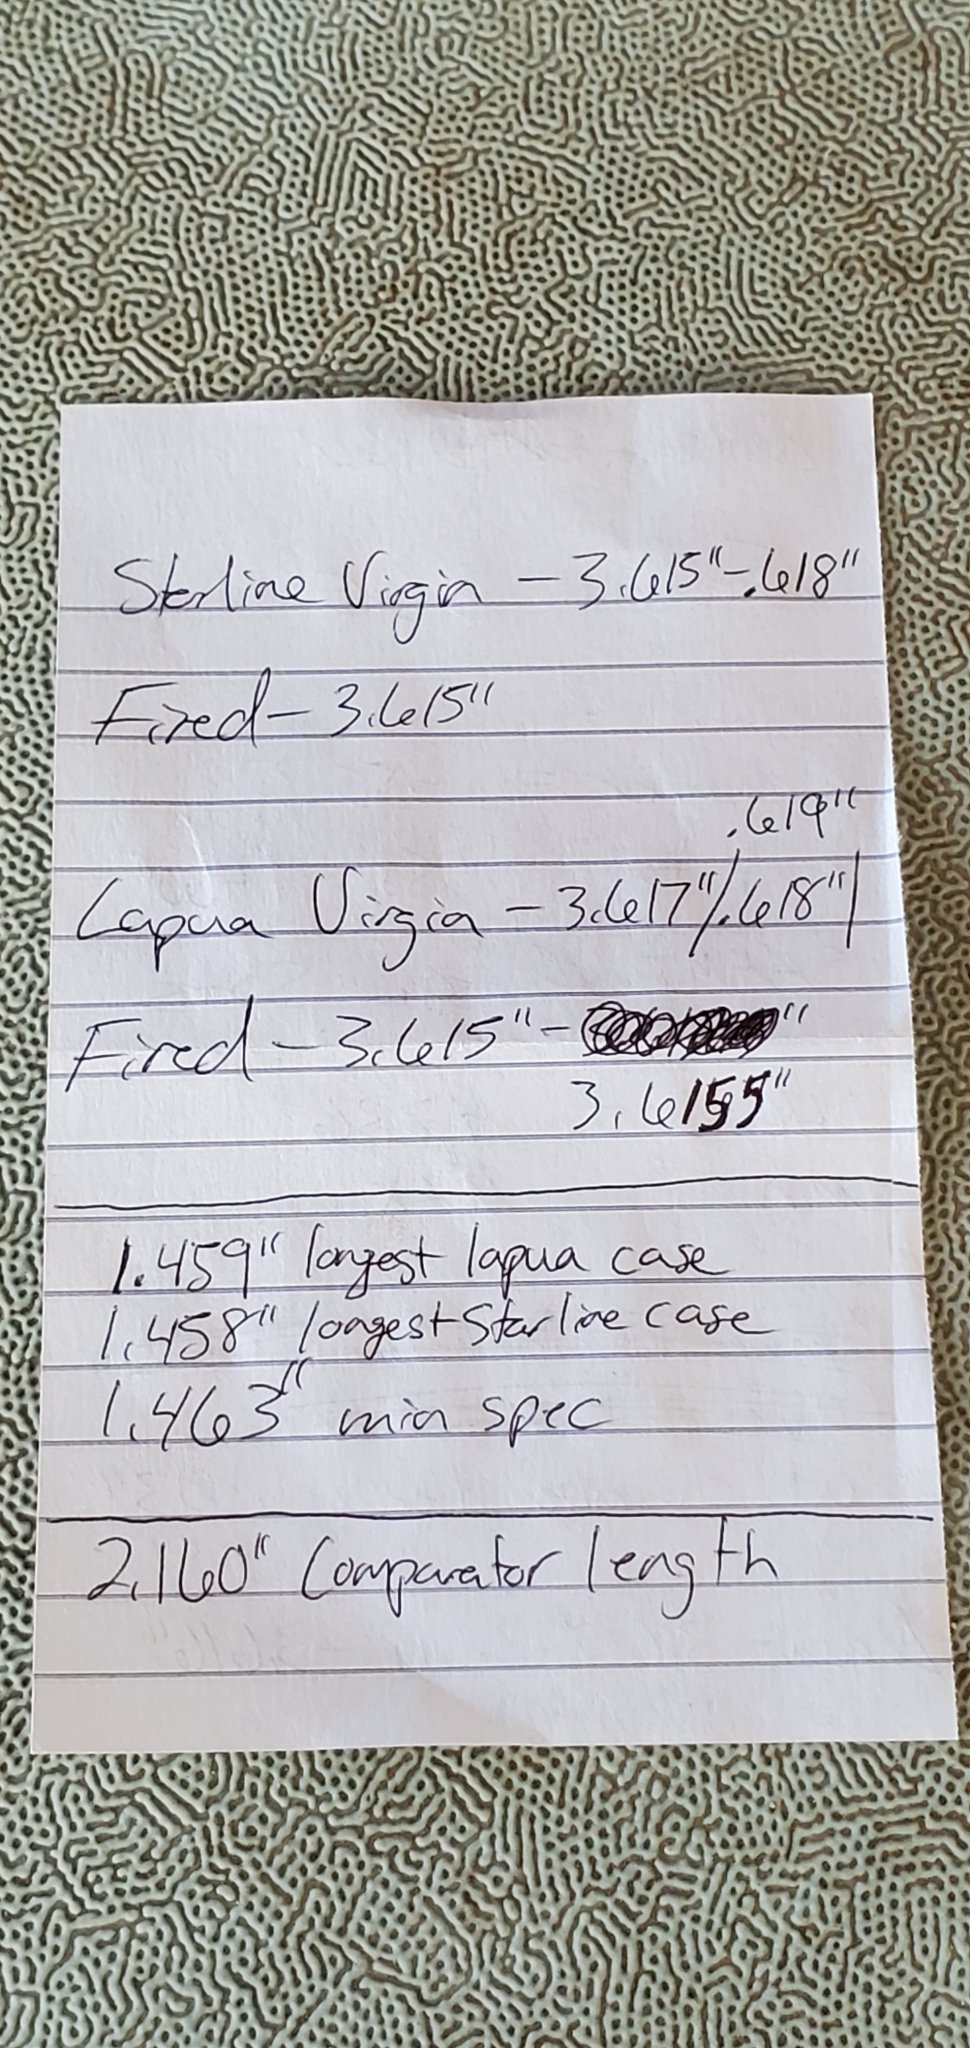 Starline Virgin - 3.615"-.618"
Fired - 3.615"
.619"
Lapua Virgin - 3.617"/.618"/
Fired - 3.615"- "
3.6155"
1.459" longest lapua case
1.458" longest Starline case
1.463" min spec
2.160" Comparator length